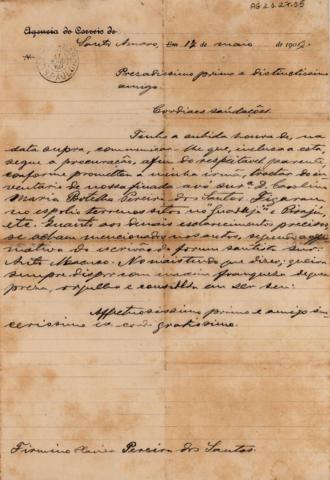 AG 2.3.27.35
Agencia do Correio de
Santo Amaro, Em 12 de maio de 1902.
Presadissimo primo e distinctissimo
amigo.
Cordiaes saudações.
Tenho a subida honra de, na
data supra, communicar-lhe que, inclusa a esta,
segue a procuração, afim do respeitavel parente,
conforme prometteu á minha irmã, tractar do in-
ventario de nossa finada avó D. Carolina
Maria Botelho Pereira dos Santos. Figuram
no espolio terrenos sitos no
Quanto aos demais esclarecimentos precisos
se acham mencionados nos autos, segundo affir-
mativa do escrivão do forum santista snr.
Macuco. No mais tendo que dizer, queira
sempre dispor com maxima franqueza de quem
preza, orgulho e consulta em ser seu:
Affectuosissimo primo e amigo sin-
cerissimo ex corde gratissimo.
Firmino Xavier Pereira dos Santos.